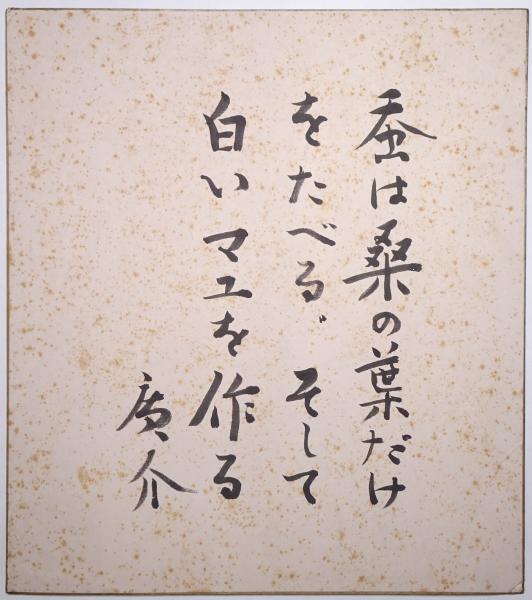 蚕は桑の葉だけ
をたべる゛そして
白いマユを作る
廣介